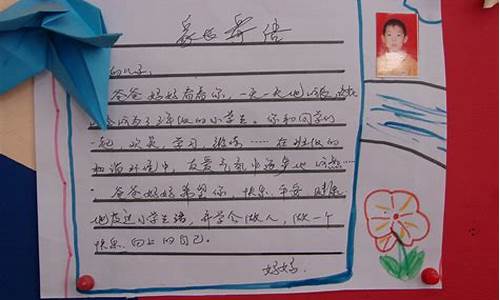 家长寄语
的儿子:
爸爸妈妈看着你,一天一天地
成为了三年级的小学生。你和同学们
一起,欢笑,学习,锻炼……在班级的
和谐环境中,友爱气氛中
爸爸妈妈希望你,快乐、平安、健康
地度过小学生活,并学会做人,做一个
快乐向上的自己。
妈妈